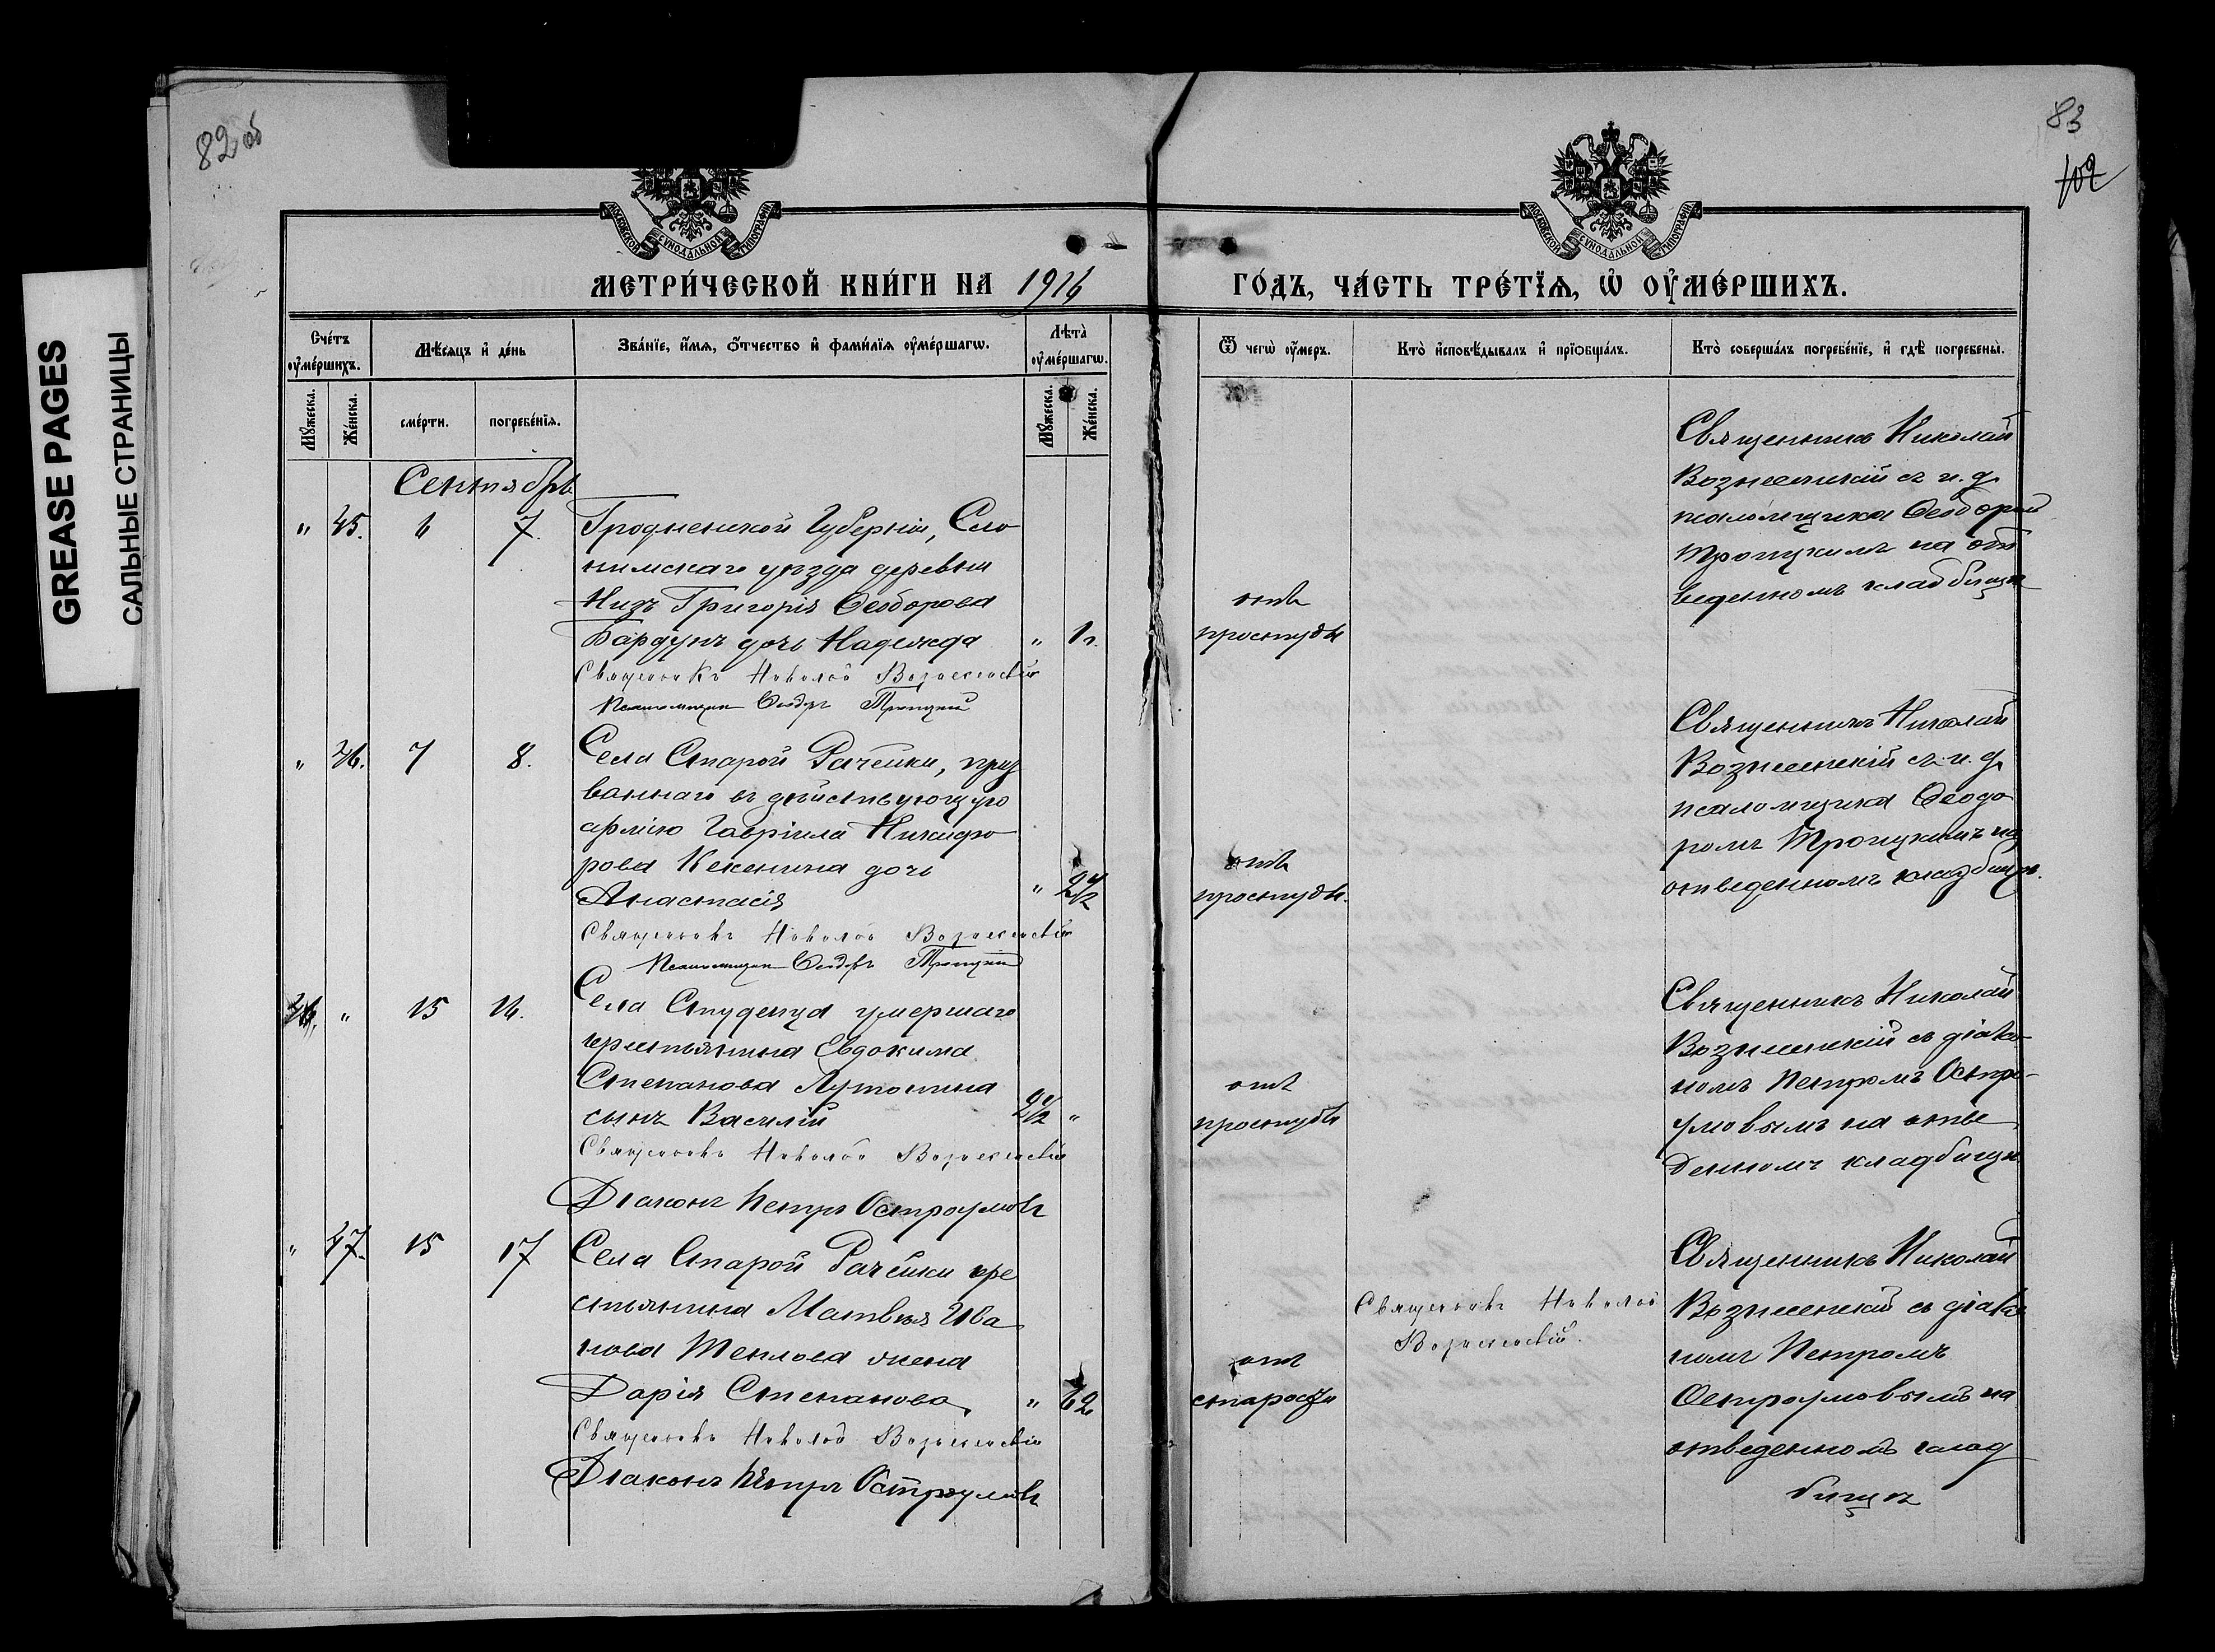 82 об
83
102
GREASE PAGES
САЛЬНЫЕ СТРАНИЦЫ
МОСКОВСКОЙ СѴНОДАЛЬНОЙ ТИПОГРАФІИ
МОСКОВСКОЙ СѴНОДАЛЬНОЙ ТИПОГРАФІИ
МЕТРИ́ЧЕСКОЙ КНИ́ГИ НА 1916
ГО́ДЪ, ЧА́СТЬ ТРЕ́ТЇѦ, Ѡ҆ ОУ҆МЕ́РШИХЪ.
Сче́тъ оу҆ме́ршихъ.
Мѣ́сѧцъ и҆ де́нь
Зва́нїе, и҆́мѧ, ѻ҆́тчество и҆ фами́лїѧ оу҆ме́ршагѡ.
Лѣ́та оу҆ме́ршагѡ.
Ѿ чегѡ̀ оу҆́меръ.
Кто̀ и҆сповѣ́дывалъ и҆ прїѡбща́лъ.
Кто̀ соверша́лъ погребе́нїе, и҆ гдѣ̀ погребены̀.
Мꙋ́жеска.
Же́нска.
сме́рти.
погребе́нїѧ.
Мꙋ́жеска.
Же́нска.
Сентябрь
" 45. 6 7.
Гродненской Губерніи, Сло
нимскаго уѣзда деревни
Низъ Григорія Ѳеодорова
Бардунъ дочь Надежда " 1 г.
Священникъ Николай Вознесенскій
Псаломщик Ѳеодоръ Троицкій
отъ
простуды
Священникъ Николай
Вознесенскій съ и. д.
псаломщика Ѳеодоромъ
Троицкимъ на от
веденномъ кладбищѣ
" 46. 7 8.
Села Старой Рачейки, приз
ваннаго въ дѣйствующую
армію Гавріила Никифо
рова Кекенина дочь
Анастасія " 2 1/2
Священникъ Николай Вознесенскій
Псаломщик Ѳеодоръ Троицкій
отъ
простуды.
Священникъ Николай
Вознесенскій съ и. д.
псаломщика Ѳеодо
ромъ Троицкимъ на
отведенномъ кладбищѣ.
" 15 16.
Села Студенца умершаго
крестьянина Евдокима
Степанова Лутошина
сынъ Василій 2 1/2 "
Священникъ Николай Вознесенскій
Діаконъ Петръ Остроумовъ
отъ
простуды
Священникъ Николай
Вознесенскій съ діако-
номъ Петромъ Остро-
умовымъ на отве
денномъ кладбищѣ
" 47. 15 17
Села Старой Рачейки кре
стьянина Матвѣя Ива
нова Теплова жена
Дарія Степанова, " 62
Священникъ Николай Вознесенскій
Діаконъ Петръ Остроумовъ
отъ
старости
Священникъ Николай
Вознесенскій.
Священникъ Николай
Вознесенскій съ діако
номъ Петромъ
Остроумовымъ на
отведенномъ клад
бищѣ